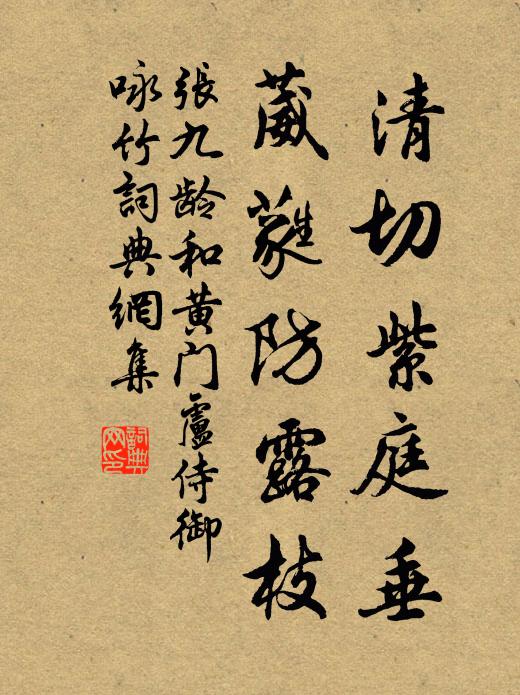 清切紫庭垂
葳蕤防露枝
張九龄和黄门盧侍御
咏竹詞典網集
詞典網印